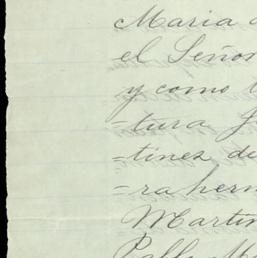 Maria
el Señor
y como
=tura
=tinez de
=ra her
Martin
Pablo M